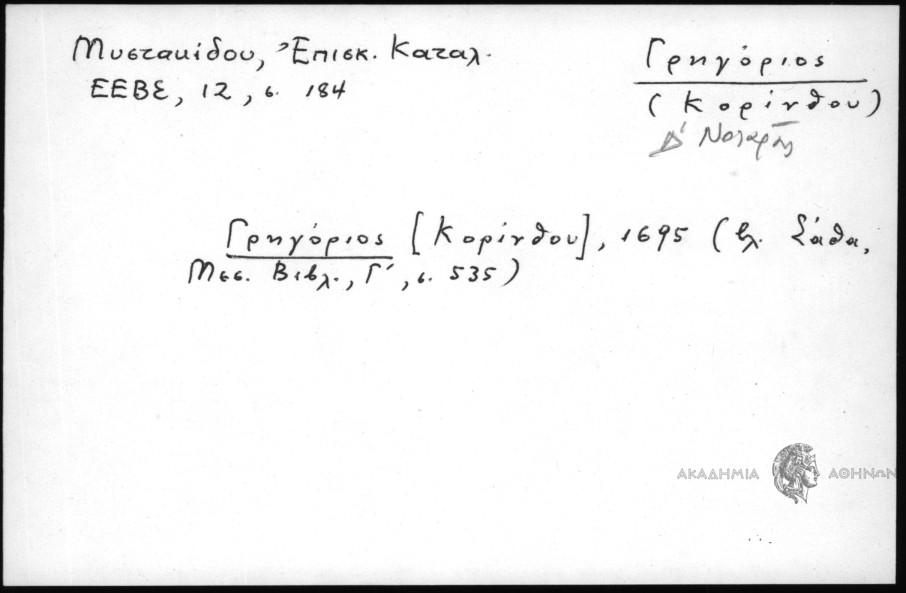 Μυστακίδου, Ἐπισκ. Καταλ.
ΕΕΒΣ, 12, σ. 184
Γρηγόριος
(Κορίνθου)
Δ' Νοταρᾶς
Γρηγόριος [Κορίνθου], 1695 (βλ. Σάθα,
Μεσ. Βιβλ., Γ', σ. 535)
ΑΚΑΔΗΜΙΑ ΑΘΗΝΩΝ